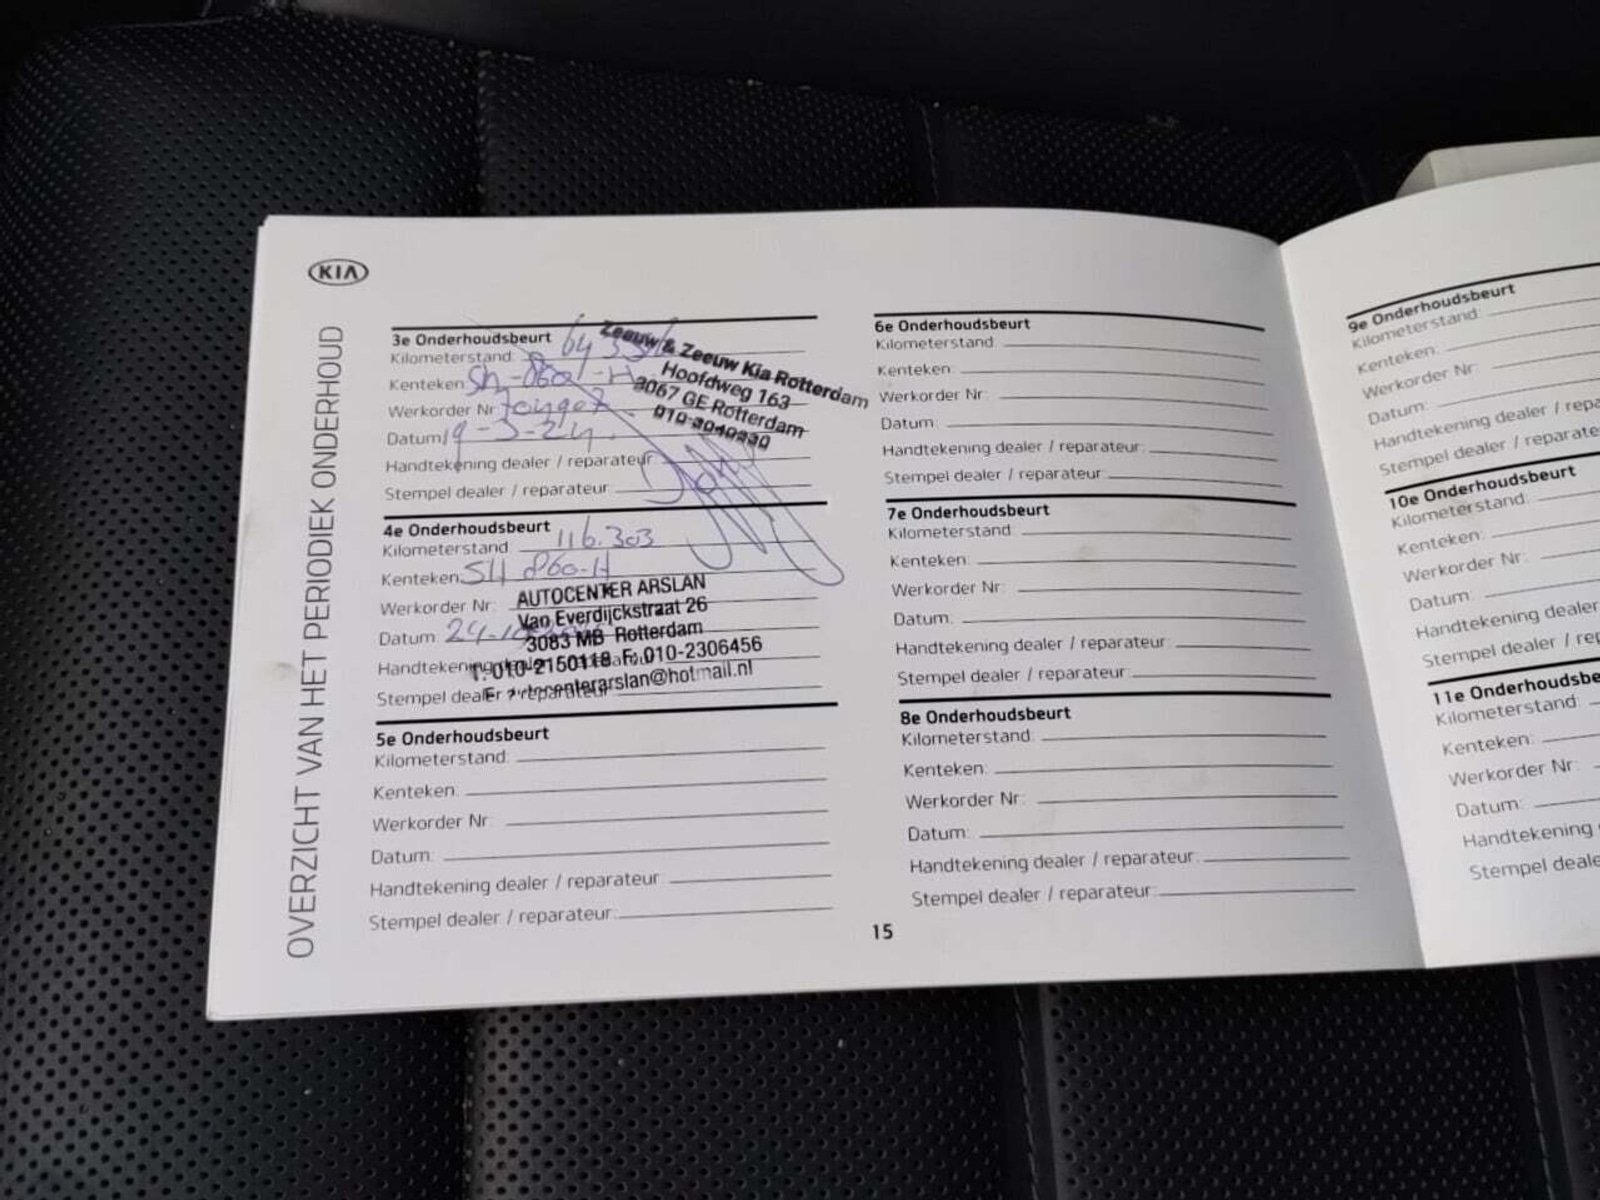 KIA
OVERZICHT VAN HET PERIODIEK ONDERHOUD
3e Onderhoudsbeurt
Kilometerstand:
Kenteken:
Werkorder Nr:
Datum: 19-3-24
Handtekening dealer / reparateur:
Stempel dealer / reparateur:
Zeeuw & Zeeuw Kia Rotterdam
Hoofdweg 163
3067 GE Rotterdam
4e Onderhoudsbeurt
Kilometerstand: 116.303
Kenteken: SH 860-H
Werkorder Nr:
Datum:
Handtekening
Stempel dealer / reparateur:
AUTOCENTER ARSLAN
Van Everdijckstraat 26
3083 MB Rotterdam
T: 010-2150118 F: 010-2306456
E: autocenterarslan@hotmail.nl
5e Onderhoudsbeurt
Kilometerstand:
Kenteken:
Werkorder Nr:
Datum:
Handtekening dealer / reparateur:
Stempel dealer / reparateur:
6e Onderhoudsbeurt
Kilometerstand:
Kenteken:
Werkorder Nr:
Datum:
Handtekening dealer / reparateur:
Stempel dealer / reparateur:
7e Onderhoudsbeurt
Kilometerstand:
Kenteken:
Werkorder Nr:
Datum:
Handtekening dealer / reparateur:
Stempel dealer / reparateur:
8e Onderhoudsbeurt
Kilometerstand:
Kenteken:
Werkorder Nr:
Datum:
Handtekening dealer / reparateur:
Stempel dealer / reparateur:
15
9e Onderhoudsbeurt
Kilometerstand:
Kenteken:
Werkorder Nr:
Datum:
Handtekening dealer / repa
Stempel dealer / reparate
10e Onderhoudsbeurt
Kilometerstand:
Kenteken:
Werkorder Nr:
Datum:
Handtekening dealer
Stempel dealer / rep
11e Onderhoudsbe
Kilometerstand:
Kenteken:
Werkorder Nr:
Datum:
Handtekening
Stempel deale